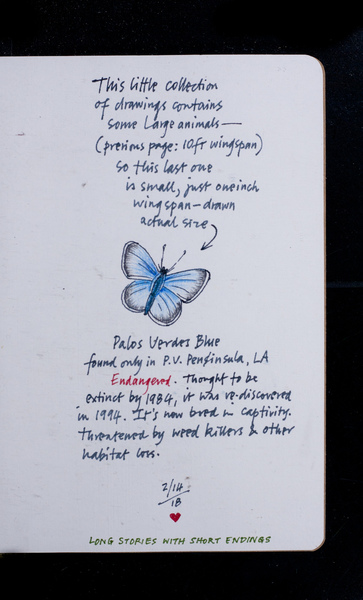 This little collection
of drawings contains
some Large animals—
(previous page: 10ft wingspan)
So this last one
is small, just one inch
wingspan—drawn
actual size
Palos Verdes Blue
found only in P.V. Peninsula, LA
Endangered. Thought to be
extinct by 1984, it was re-discovered
in 1994. It's now bred in captivity.
Threatened by weed killers & other
habitat loss.
2/14
18
LONG STORIES WITH SHORT ENDINGS